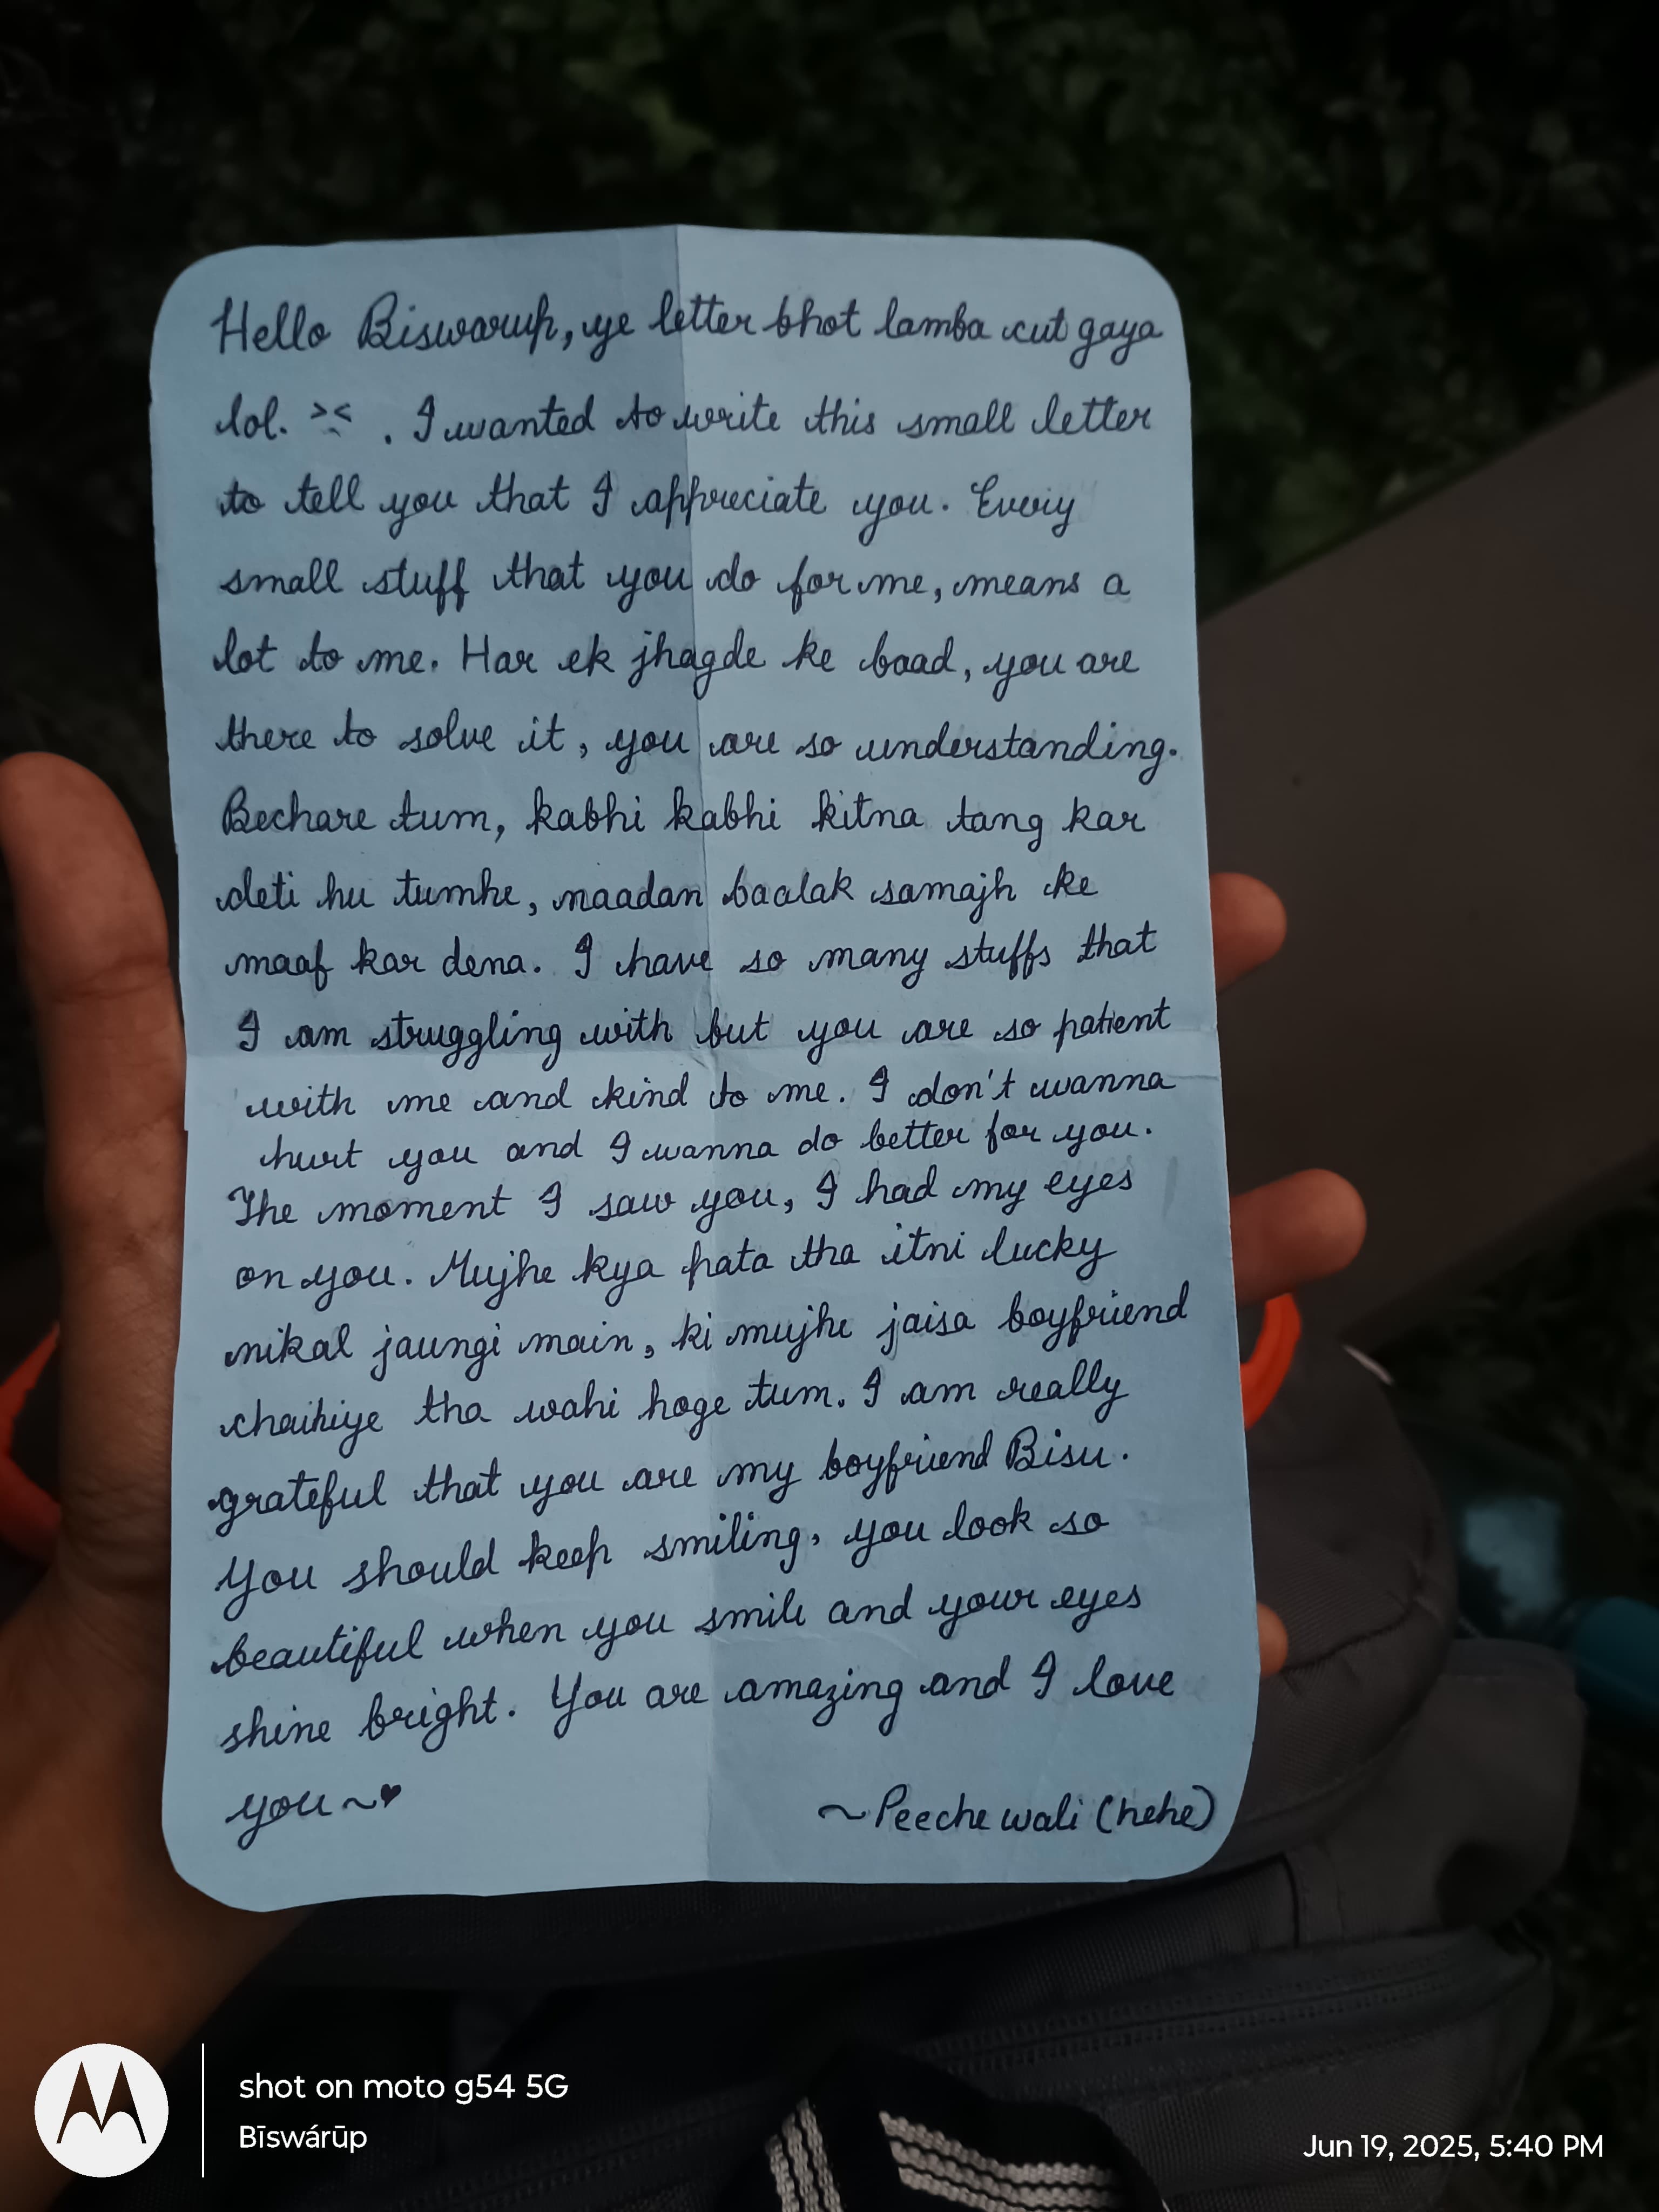 Hello Biswarup, ye letter bhot lamba cut gaya
lol. >~< . I wanted to write this small letter
to tell you that I appreciate you. Every
small stuff that you do for me, means a
lot to me. Har ek jhagde ke baad, you are
there to solve it, you are so understanding.
Bechare tum, kabhi kabhi kitna tang kar
deti hu tumhe, naadan baalak samajh ke
maaf kar dena. I have so many stuffs that
I am struggling with but you are so patient
with me and kind to me. I don't wanna
hurt you and I wanna do better for you.
The moment I saw you, I had my eyes
on you. Mujhe kya pata tha itni lucky
nikal jaungi main, ki mujhe jaisa boyfriend
chaihiye tha wahi hoge tum. I am really
grateful that you are my boyfriend Bisu.
You should keep smiling, you look so
beautiful when you smile and your eyes
shine bright. You are amazing and I love
you ~♥
~Peeche wali (hehe)
shot on moto g54 5G
Bīswárūp
Jun 19, 2025, 5:40 PM